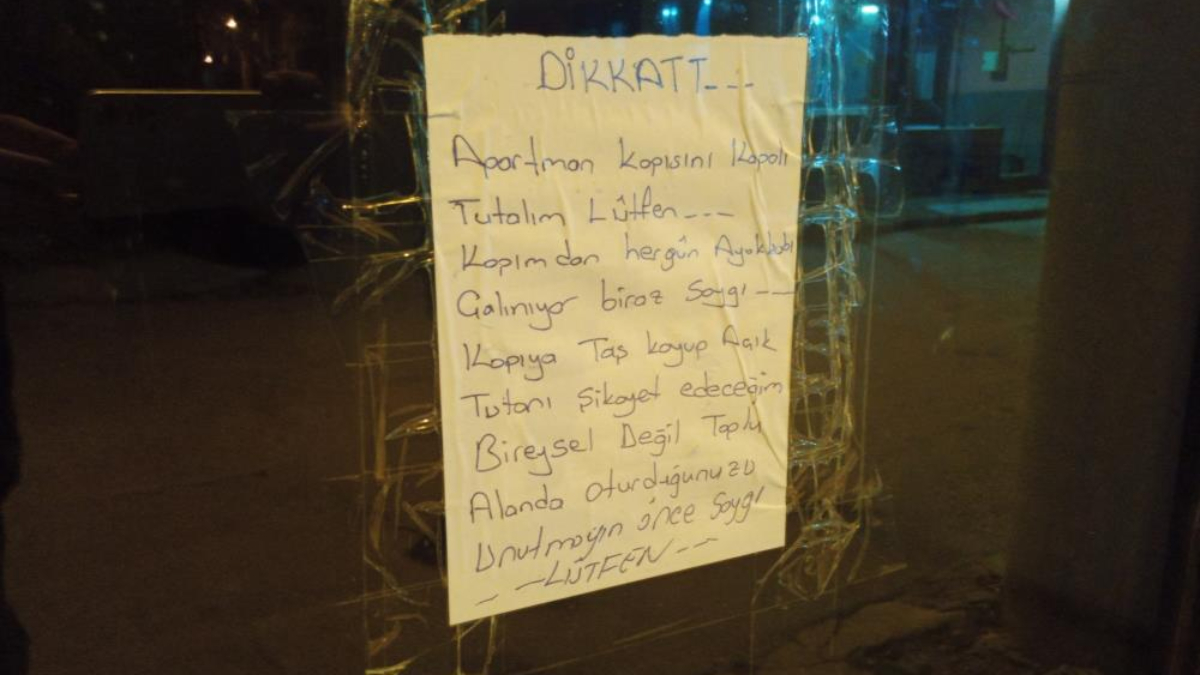 DİKKATT---
Apartman kapısını Kapalı
Tutalım Lütfen---
Kapımdan hergün Ayakkabı
Çalınıyor biraz Saygı---
Kapıya Taş koyup Açık
Tutanı Şikayet edeceğim
Bireysel Değil Toplu
Alanda oturduğunuzu
Unutmayın önce Saygı
---LÜTFEN---